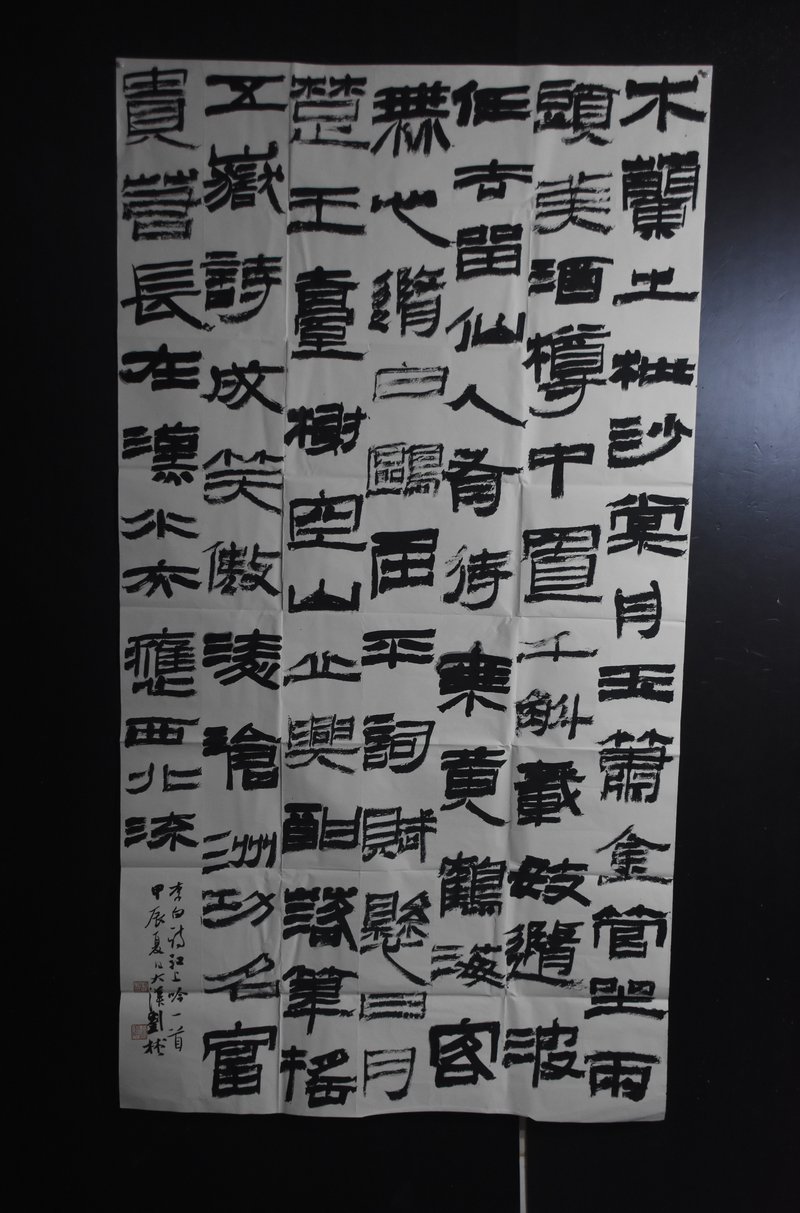 木蘭之枻沙棠舟玉簫金管坐兩
頭美酒樽中置千斛載妓隨波
任去留仙人有待乘黄鶴海客
無心隨白鷗屈平詞賦懸日月
楚王臺榭空山丘興酣落筆搖
五嶽詩成笑傲淩滄洲功名富
貴若長在漢水亦應西北流
李白詩江上吟一首
甲辰夏日大漢劉